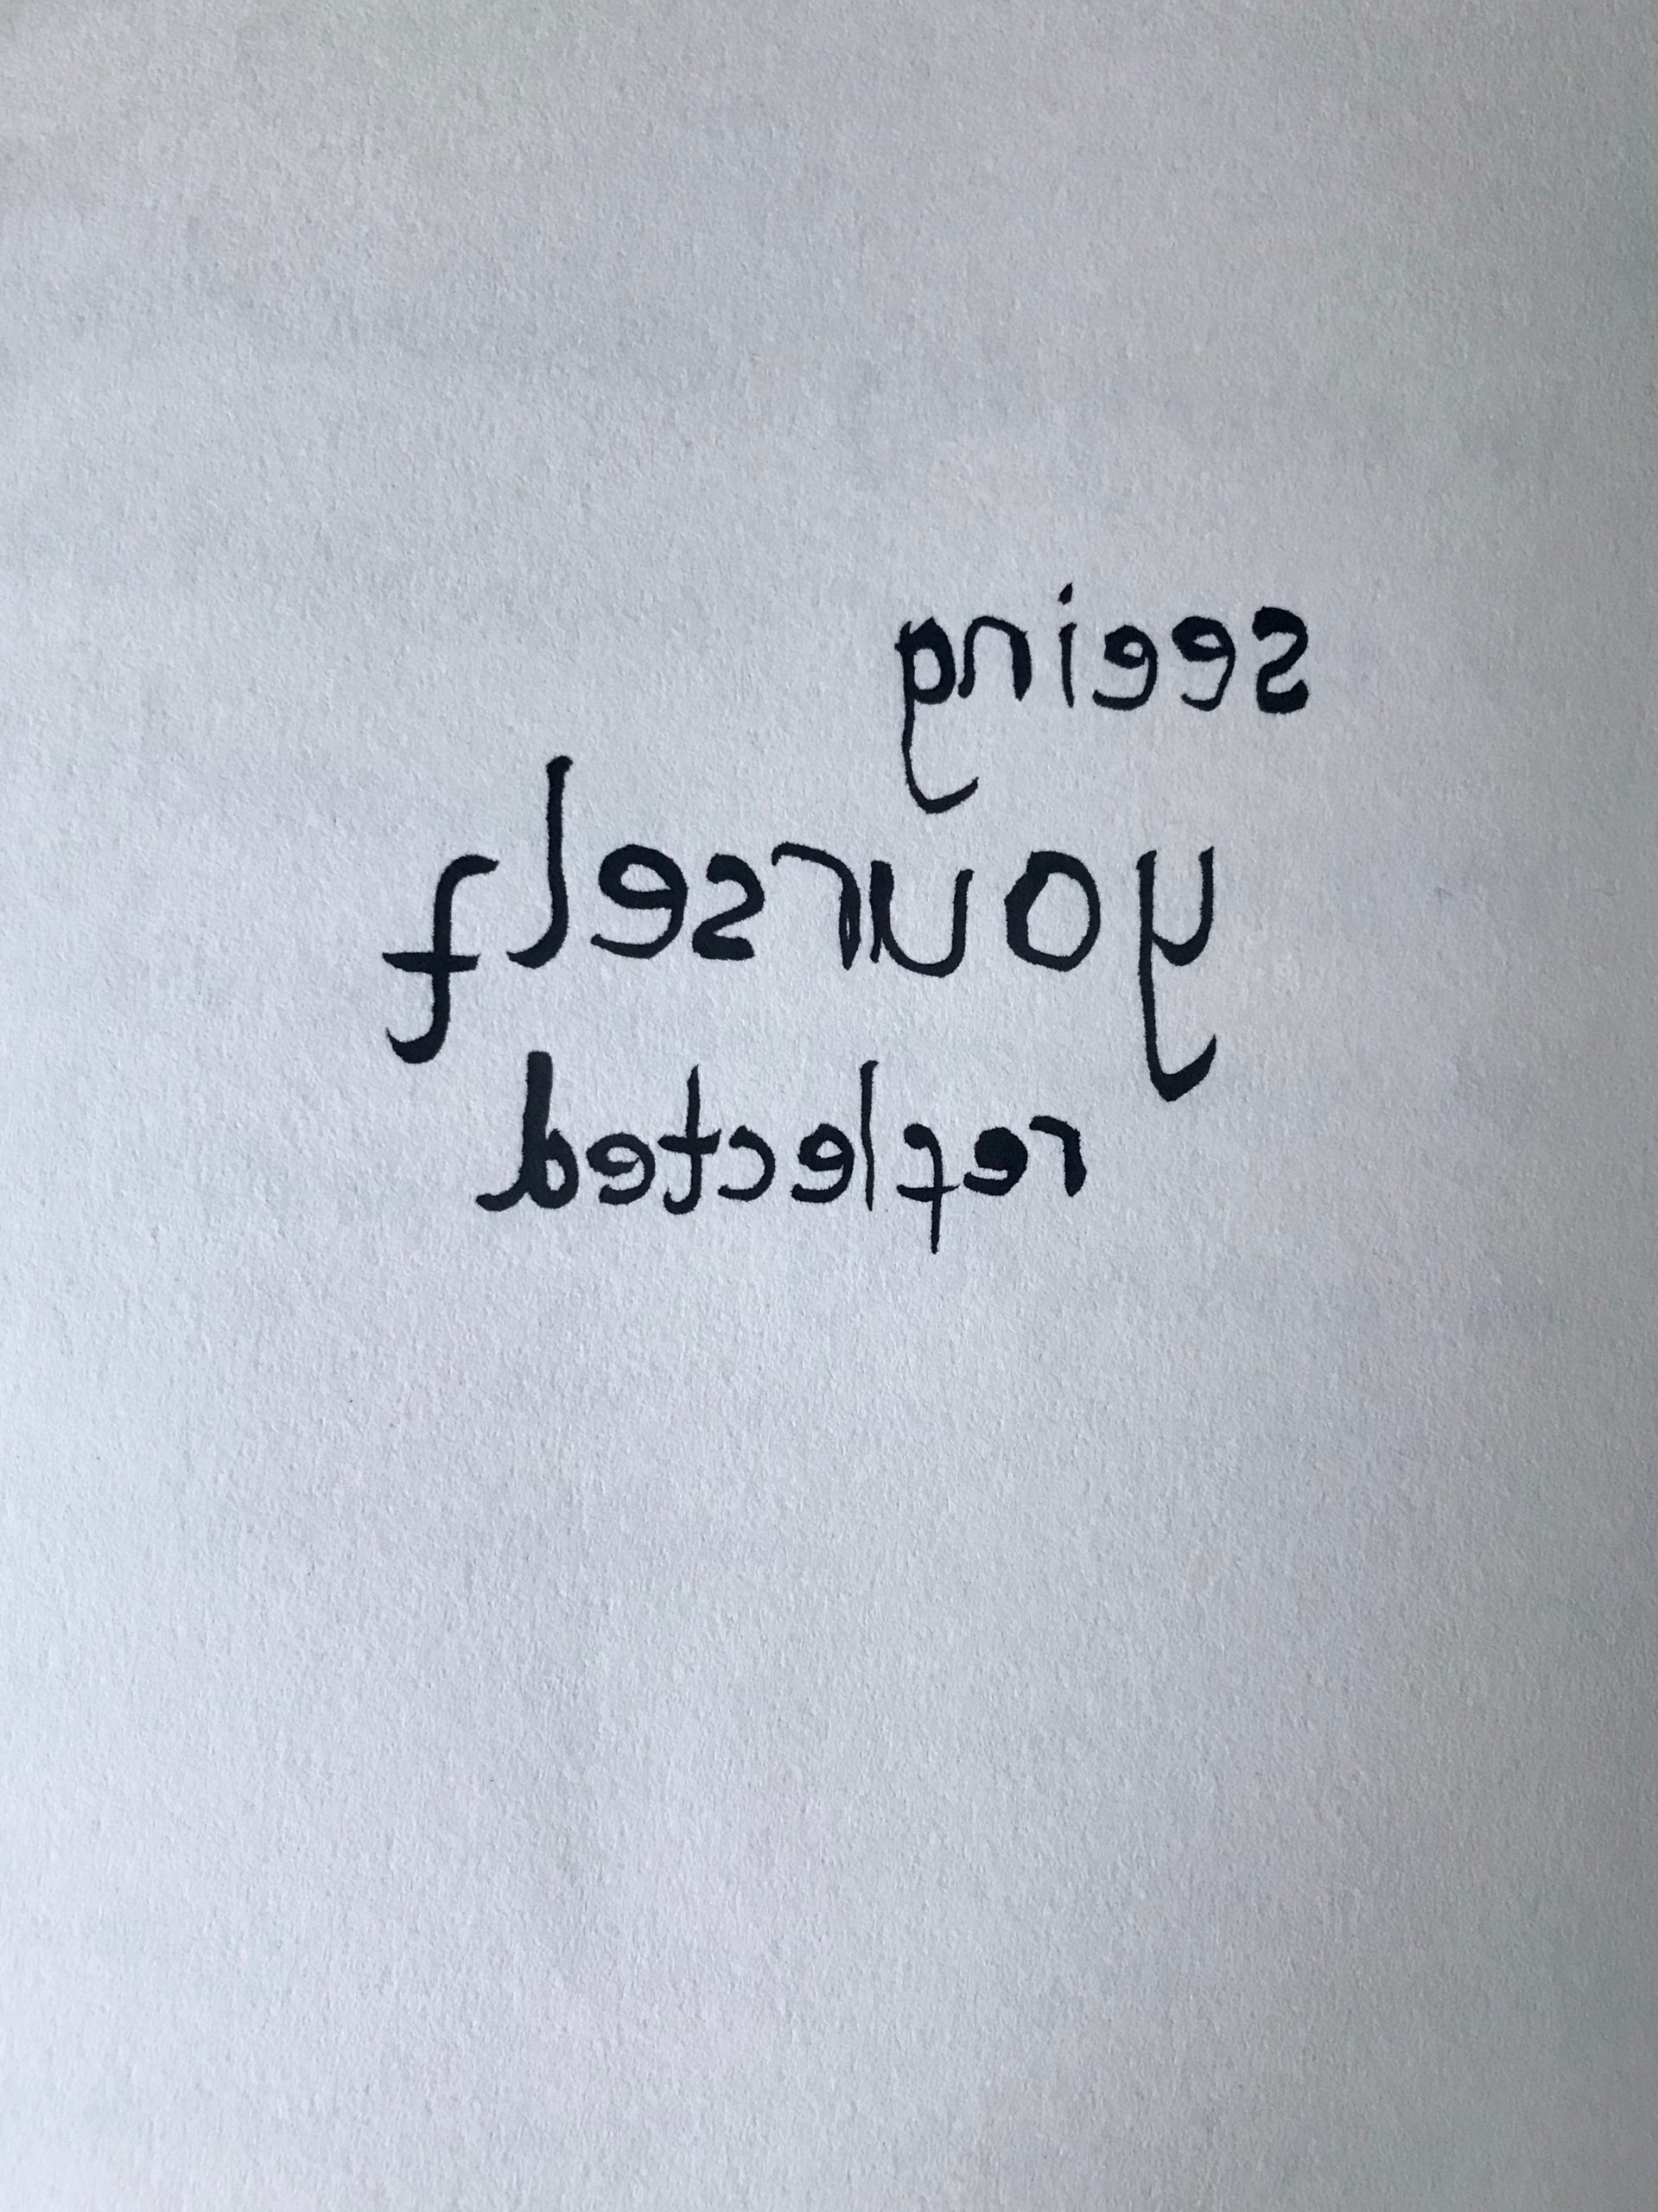 seeing
yourself
reflected